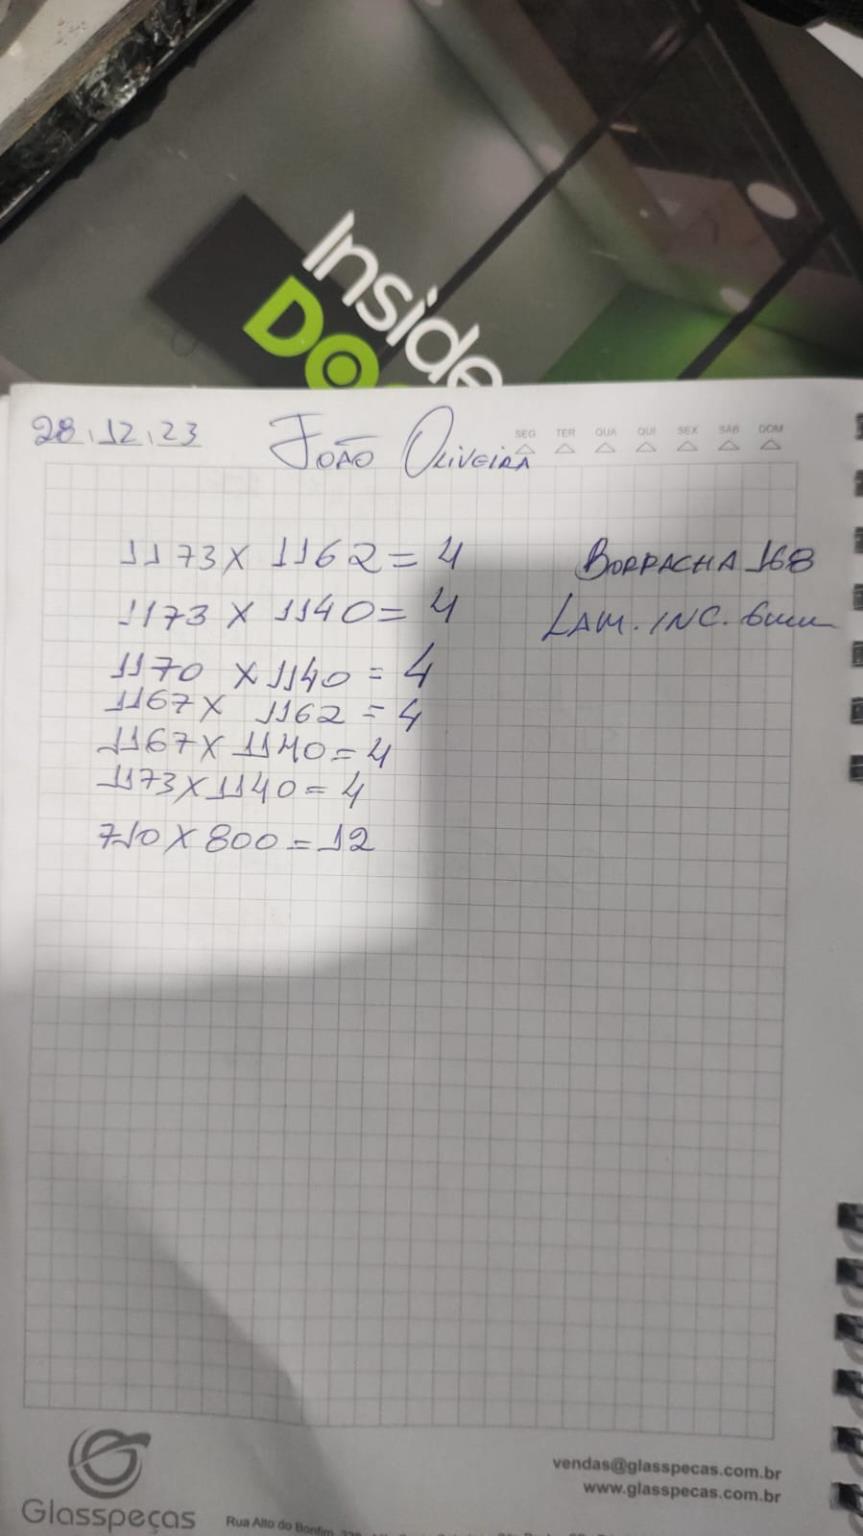 Inside
DO
28.12.23 João Oliveira SEG TER QUA QUI SEX SÁB DOM
1173 x 1162 = 4 Borracha 168
1173 x 1140 = 4 Lam. inc. 6mm
1170 x 1140 = 4
1167 x 1162 = 4
1167 x 1140 = 4
1173 x 1140 = 4
710 x 800 = 12
vendas@glasspecas.com.br
www.glasspecas.com.br
Glasspeças
Rua Alto do Bonfim